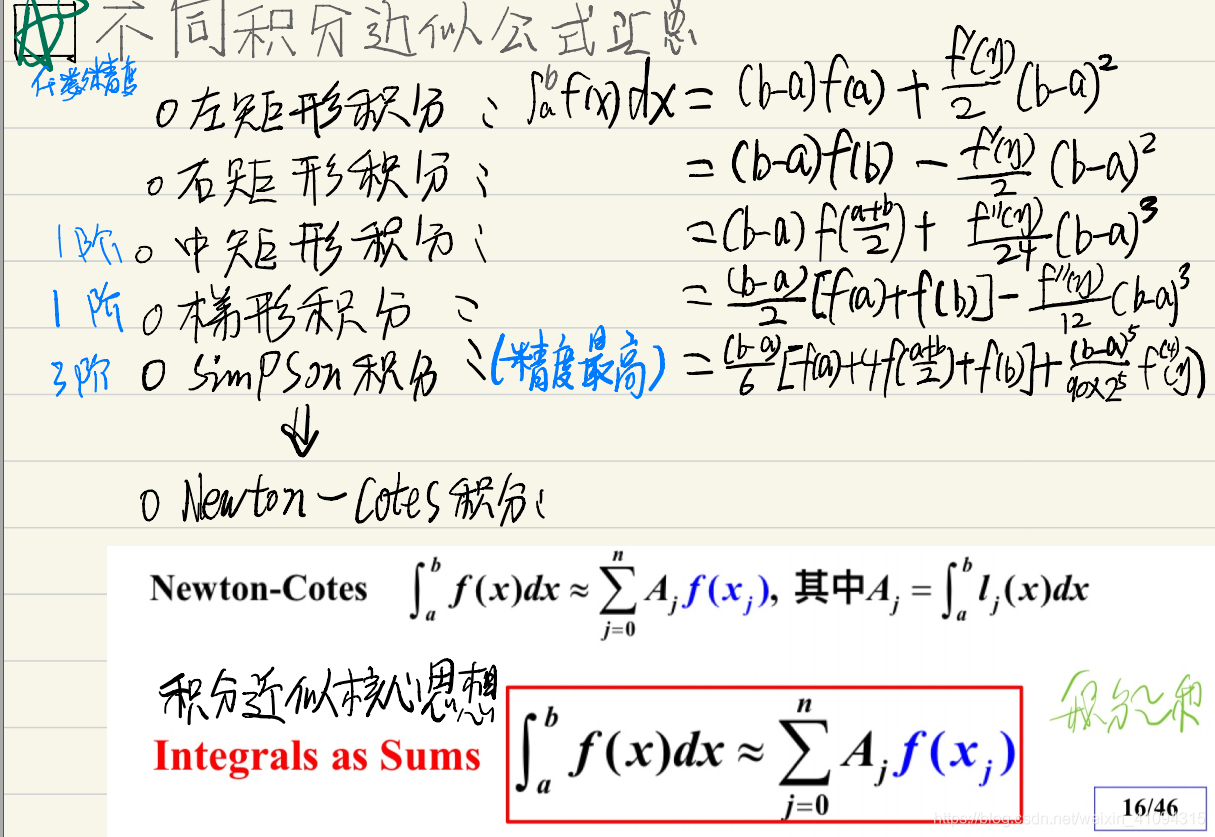 不同积分近似公式汇总
代数精度
○ 左矩形积分: ∫ₐᵇf(x)dx = (b-a)f(a) + f'(η)/2 (b-a)²
○ 右矩形积分: = (b-a)f(b) - f'(η)/2 (b-a)²
1阶 ○ 中矩形积分: = (b-a)f(a+b/2) + f''(η)/24 (b-a)³
1阶 ○ 梯形积分: = (b-a)/2 [f(a)+f(b)] - f''(η)/12 (b-a)³
3阶 ○ Simpson积分: (精度最高) = (b-a)/6 [f(a)+4f(a+b/2)+f(b)] + (b-a)⁵/90×2⁵ f⁽⁴⁾(η)
↓
○ Newton-Cotes积分:
Newton-Cotes ∫ₐᵇ f(x)dx ≈ ∑ⁿⱼ₌₀ Aⱼ f(xⱼ), 其中Aⱼ = ∫ₐᵇ lⱼ(x)dx
积分近似核心思想
Integrals as Sums ∫ₐᵇ f(x)dx ≈ ∑ⁿⱼ₌₀ Aⱼ f(xⱼ)
积分化和
16/46
https://blog.csdn.net/weixin_41094315